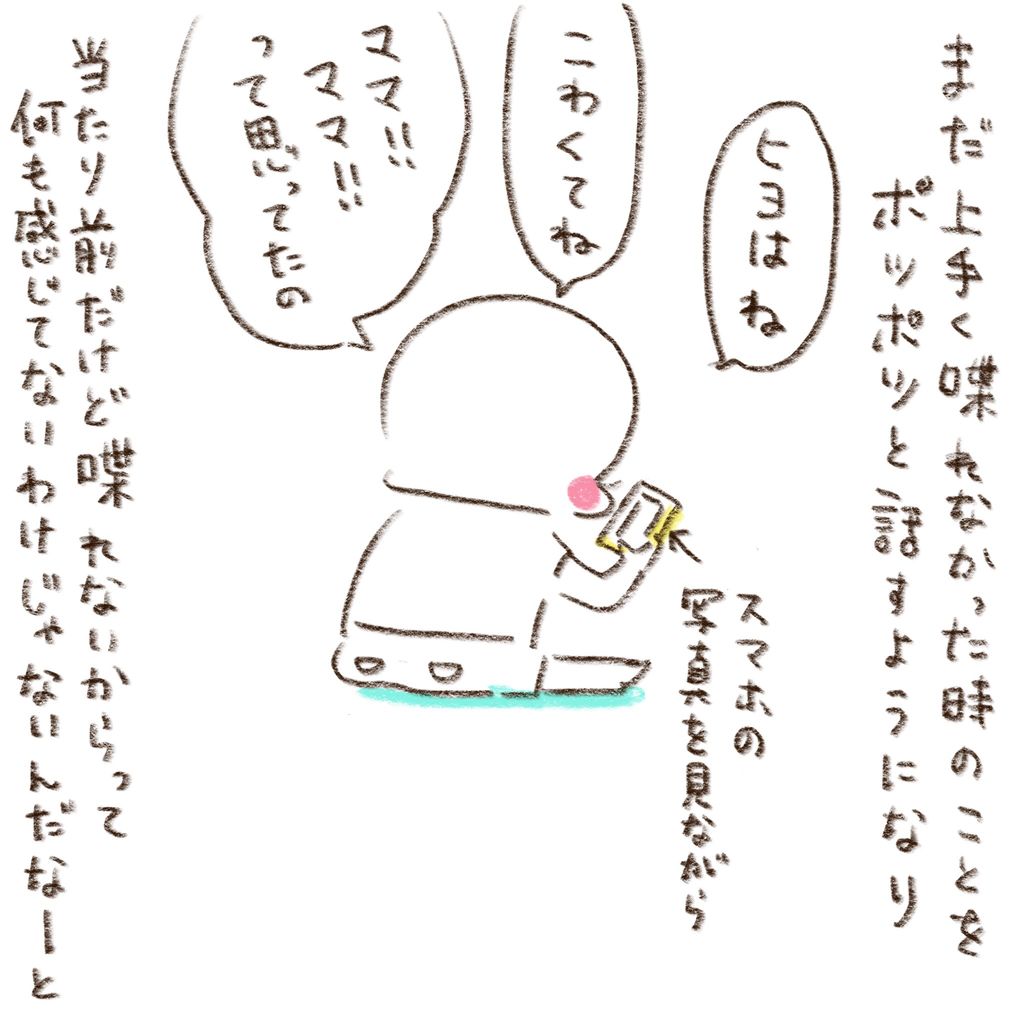 まだ上手く喋れなかった時のことを
ポツポツと話すようになり
ヒヨはね
こわくてね
ママ!!
ママ!!
って思ってたの
スマホの
写真を見ながら
当たり前だけど喋れないからって
何も感じてないわけじゃないんだなーと